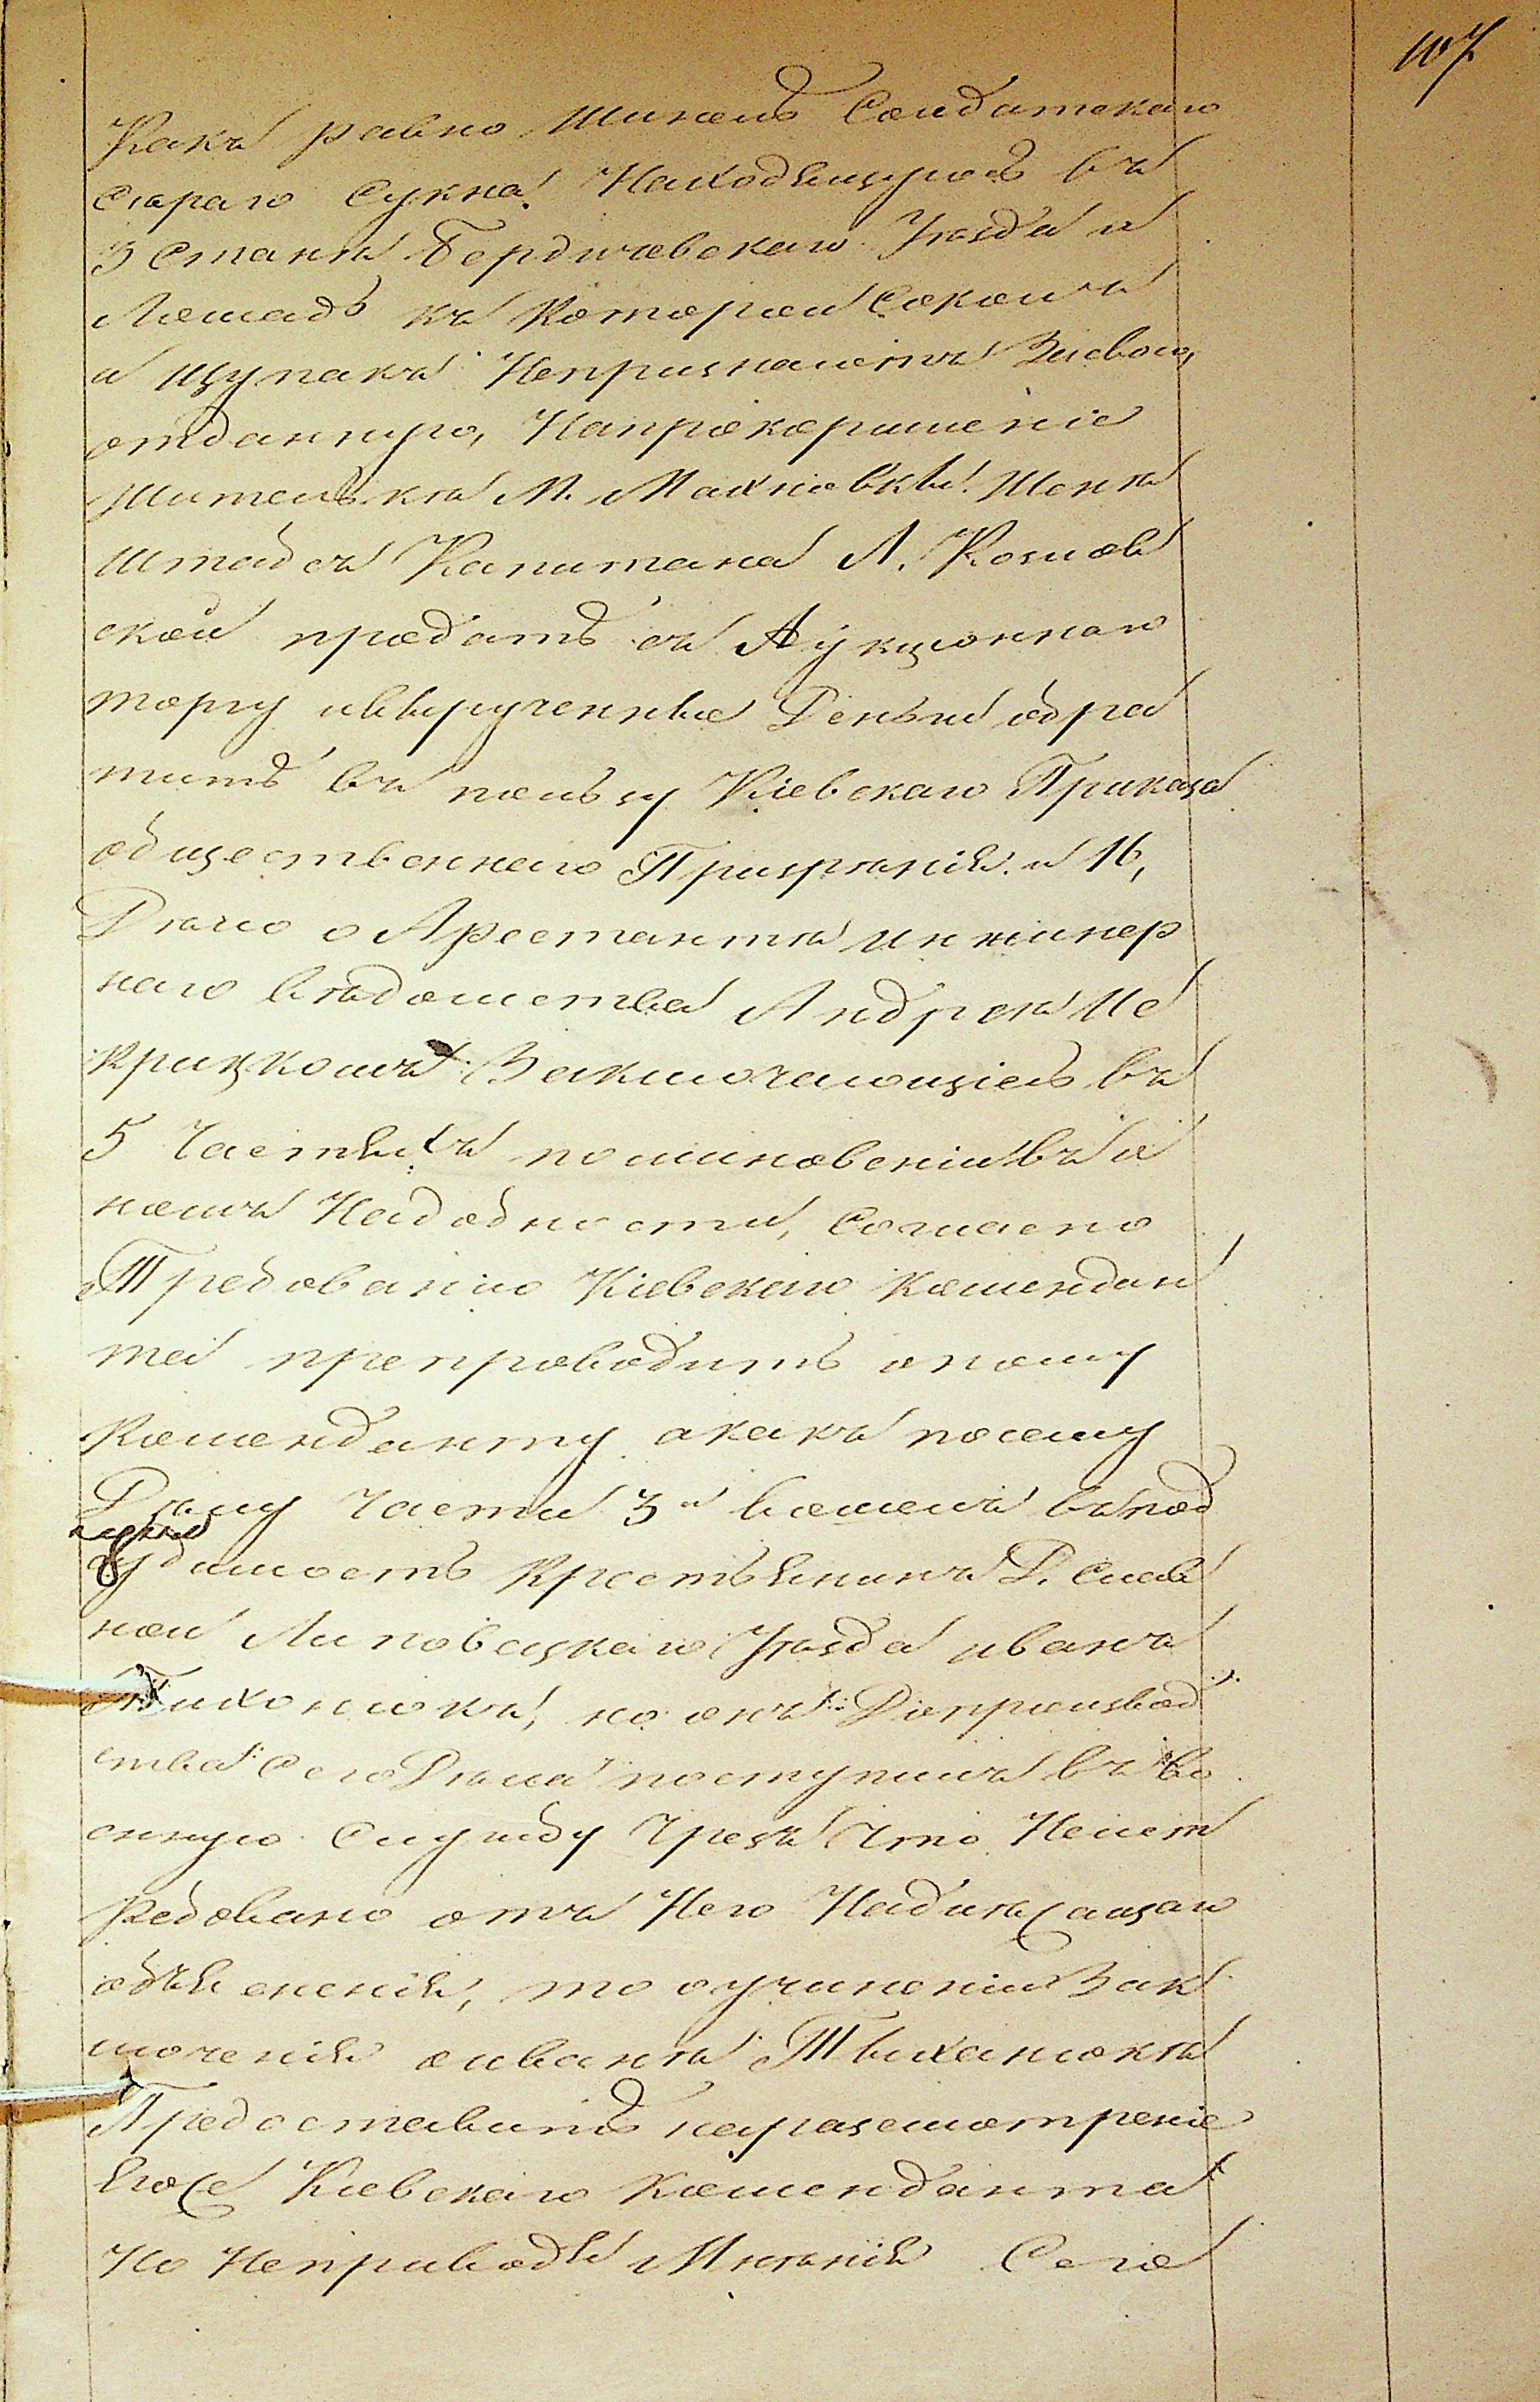 107
Какъ равно Шинель Солдатскаго
сѣраго Сукна! Находящуюсь въ
3 Станѣ Бердичевскаго Уѣзда и
Лошадь къ которой Соколъ
и щупакъ Непризнаетъ Засвою,
отданную, Напрокормленіе
Жительки М. Махновки Женѣ
штабсъ Капитана Л. Козлов
ской продать съ Аукціоннаго
торгу ивырученные Деньги обра
тить въ пользу Кіевскаго Приказа
общественнаго Призрѣнія. и 16,
Дѣло о Арестантѣ инжинер
наго вѣдомства Андреѣ Не
крицкомъ Заключающіесь въ
5 Частяхъ поминовеніи въ о
номъ Надобности, Согласно
Требованію Кіевскаго Комендан
та препроводить оному
Коменданту акакъ посему
Дѣлу Части 3й вошелъ въпод
судимость Крестьянинъ Д. Слав
ной Липовецкаго Уѣзда иванъ
Тихонюкъ, но онъ: Допроизвод
ства: Сего Дѣла поступилъ въ во
енную Службу Чрезъ Что Неист
ребовано отъ Него Надлежащаго
объясненія, то оучиненіи Зак
люченія оиванѣ Тыханюкѣ
Предоставить наразсмотреніе
Егоже Кіевскаго Коменданта
Но Неприводя Мнѣнія Сего